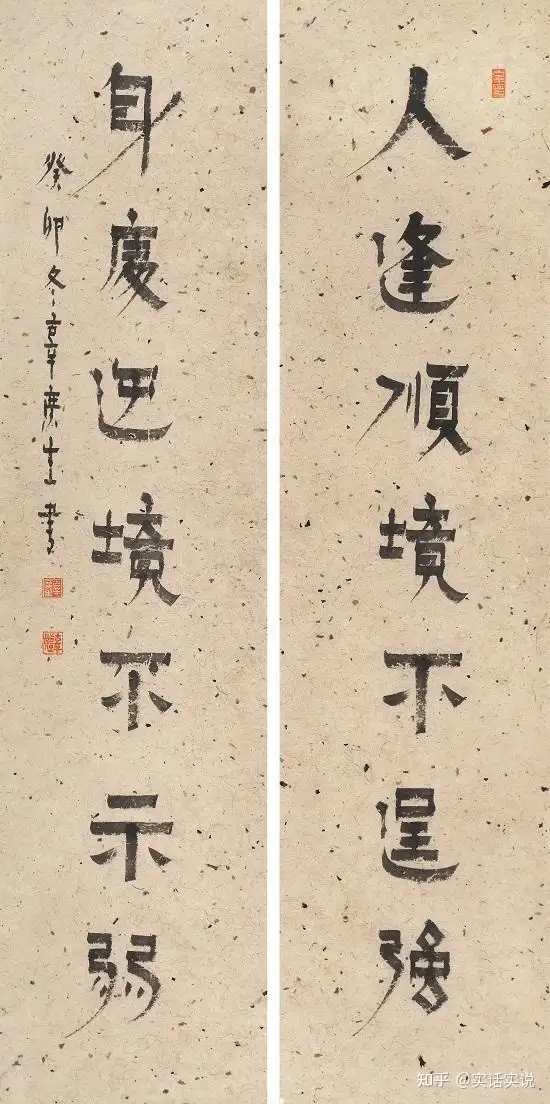 人逢順境不逞強
身處逆境不示弱
癸卯冬 書
知乎 @实话实说